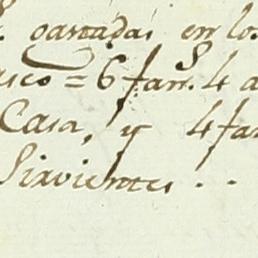 gastadas en los
asco = 6 fan.s 4 a
Casa, y 4 fan
Sirvientes . .